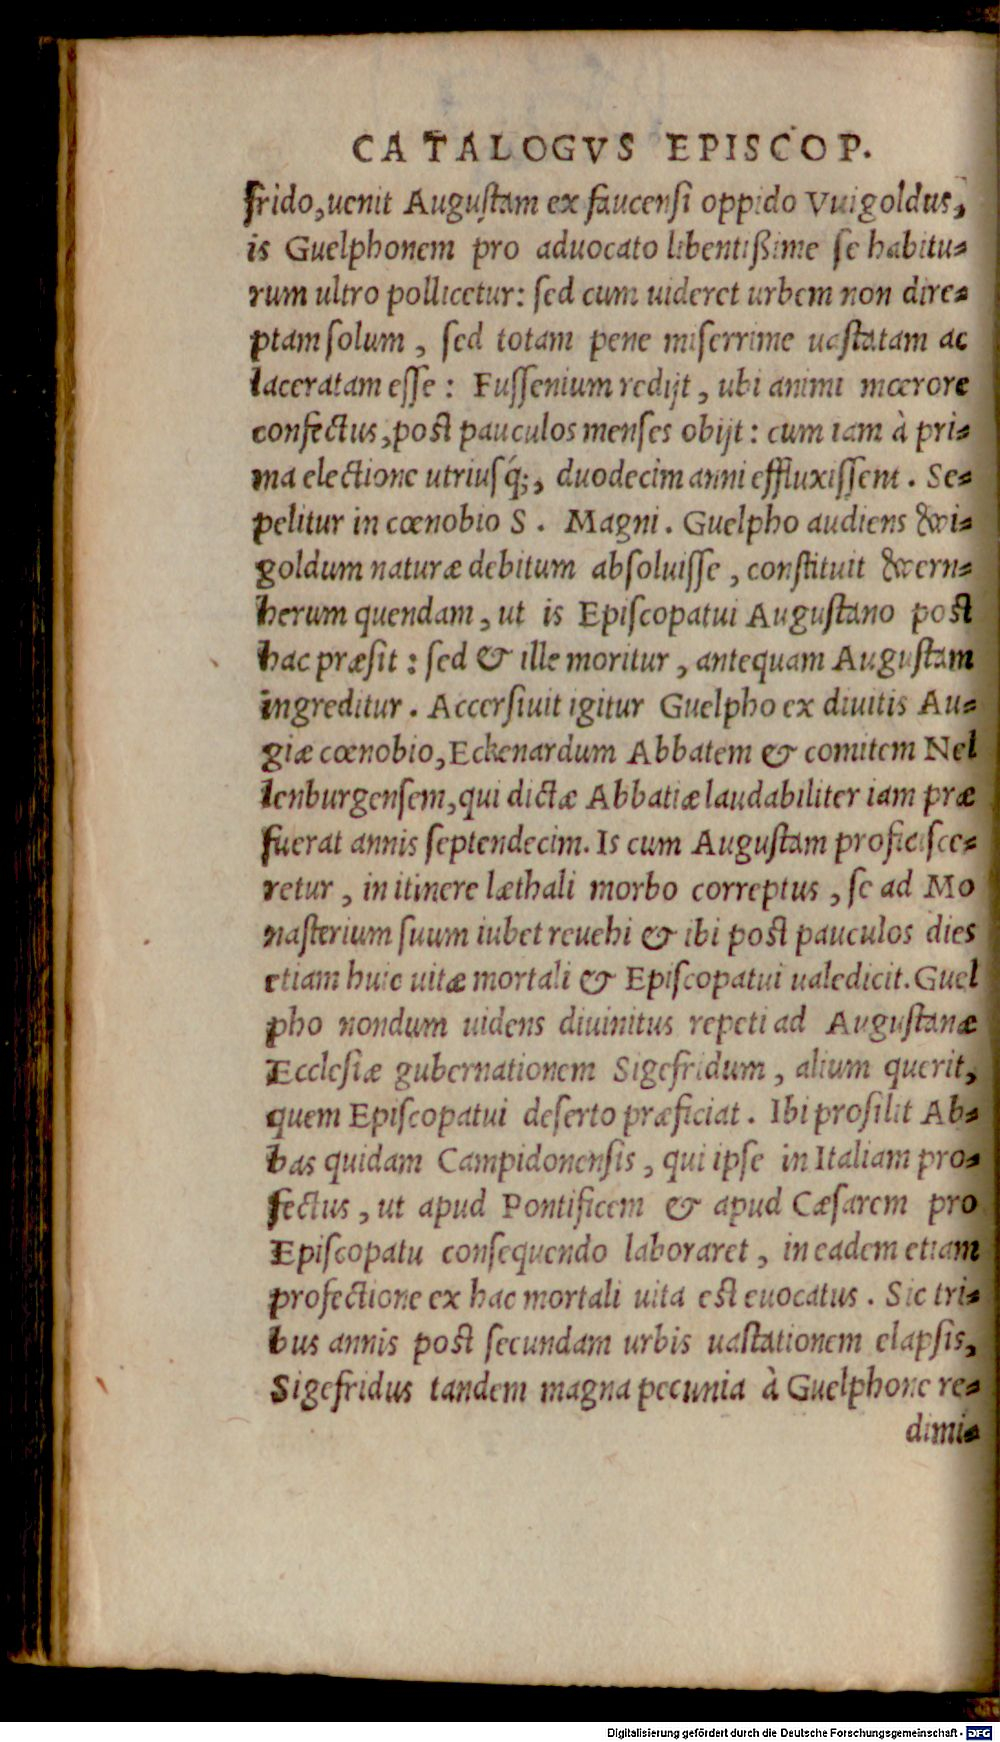 CATALOGVS EPISCOP.
frido, uenit Augustam ex faucensi oppido Vuigoldus,
is Guelphonem pro aduocato libentißime se habitu-
rum ultro pollicetur: sed cum uideret urbem non dire-
ptam solum, sed totam pene miserrime uastatam ac
laceratam esse: Fussenium redijt, ubi animi mœrore
confectus, post pauculos menses obijt: cum iam à pri-
ma electione utriusq́;, duodecim anni effluxissent. Se-
pelitur in cœnobio S. Magni. Guelpho audiens Wi-
goldum naturæ debitum absoluisse, constituit Wern-
herum quendam, ut is Episcopatui Augustano post
hac præsit: sed & ille moritur, antequam Augustam
ingreditur. Accersiuit igitur Guelpho ex diuitis Au-
giæ cœnobio, Eckenardum Abbatem & comitem Nel
lenburgensem, qui dictæ Abbatiæ laudabiliter iam præ
fuerat annis septendecim. Is cum Augustam proficisce-
retur, in itinere læthali morbo correptus, se ad Mo
nasterium suum iubet reuehi & ibi post pauculos dies
etiam huic uitæ mortali & Episcopatui ualedicit. Guel
pho nondum uidens diuinitus repeti ad Augustanæ
Ecclesiæ gubernationem Sigefridum, alium querit,
quem Episcopatui deserto præficiat. Ibi prosilit Ab-
bas quidam Campidonensis, qui ipse in Italiam pro-
fectus, ut apud Pontificem & apud Cæsarem pro
Episcopatu consequendo laboraret, in eadem etiam
profectione ex hac mortali uita est euocatus. Sic tri-
bus annis post secundam urbis uastationem elapsis,
Sigefridus tandem magna pecunia à Guelphone re-
dimi-
Digitalisierung gefördert durch die Deutsche Forschungsgemeinschaft - DFG